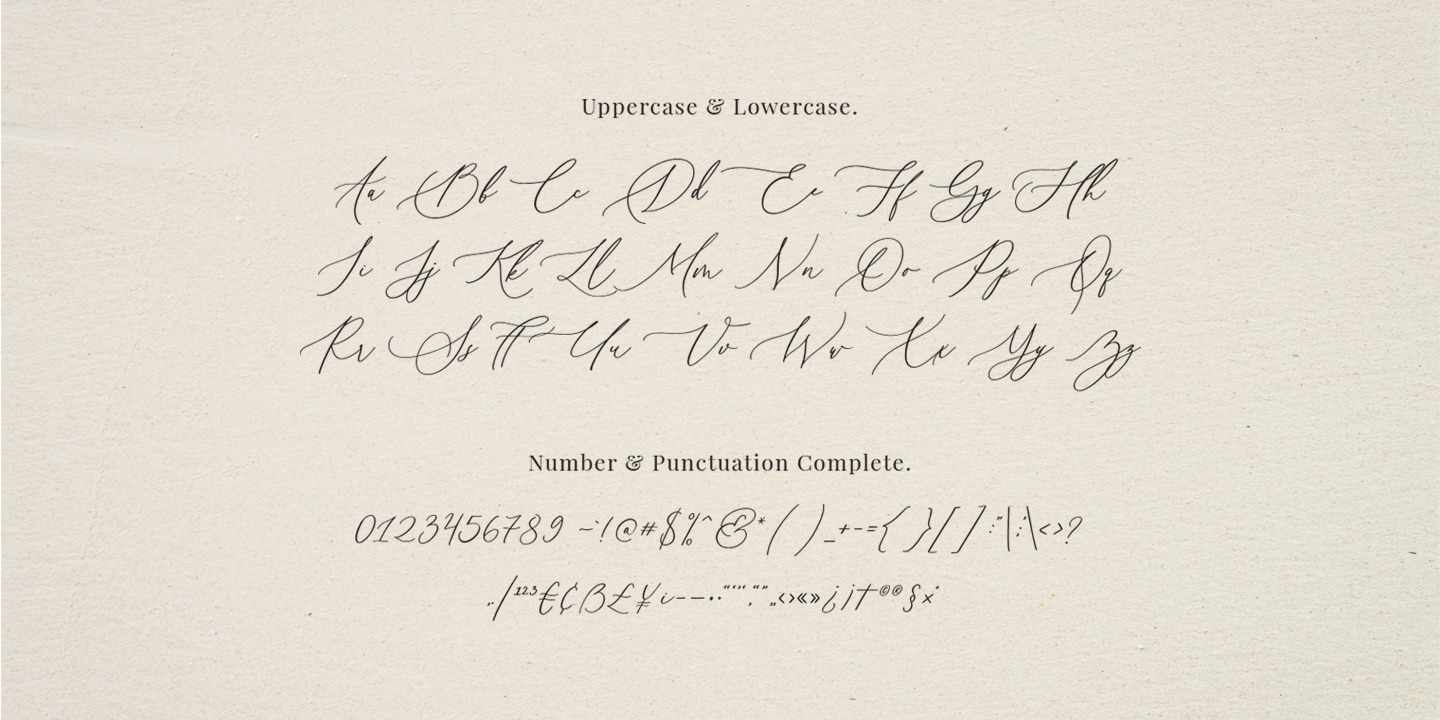 Uppercase & Lowercase.
Aa Bb Cc Dd Ee Ff Gg Hh
Ii Jj Kk Ll Mm Nn Oo Pp Qq
Rr Ss Tt Uu Vv Ww Xx Yy Zz
Number & Punctuation Complete.
0123456789 ~`!@#$%^&*()_+-={}[]:"|;'\<>?
,./¹²³€¢ß£¥